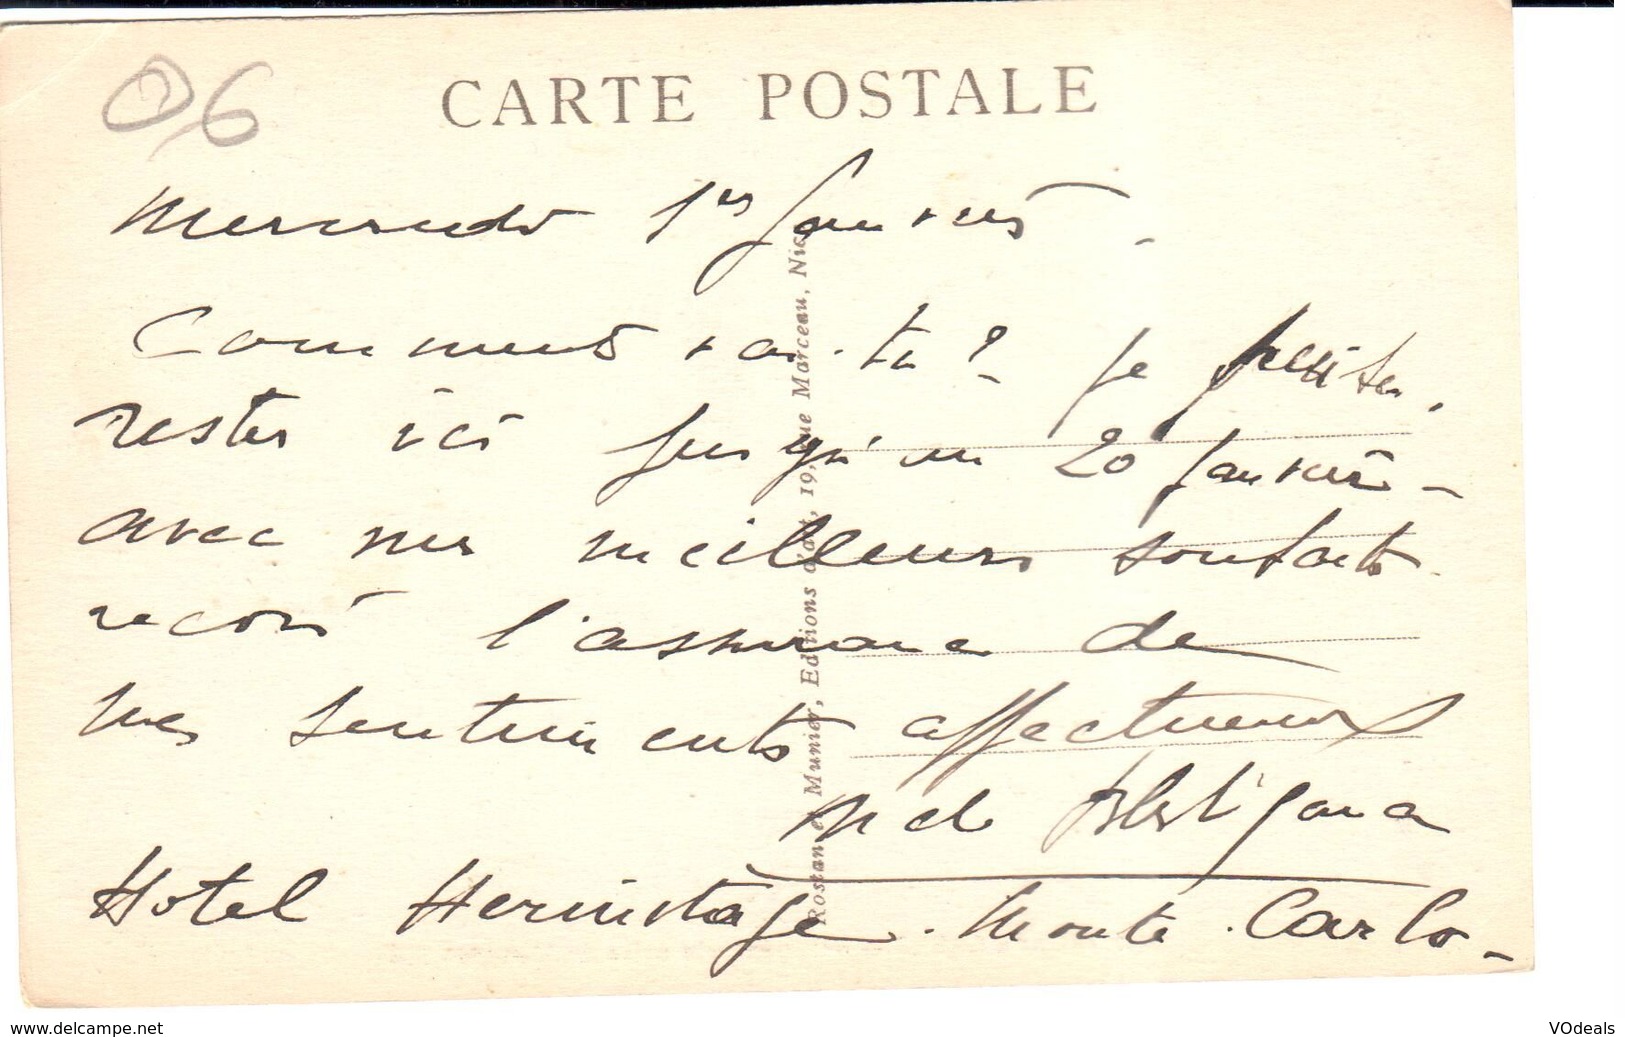 06
CARTE POSTALE
Mercredi 1er Janvier
Comment vas-tu? Je pense
rester ici jusqu'au 20 Janvier -
avec mes meilleurs souhaits
reçois l'assurance de
mes sentiments affectueux
Hotel Hermitage. Monte-Carlo -
Rostan et Munier, Editions d'art, 19, rue Marceau, Nice
www.delcampe.net
VOdeals